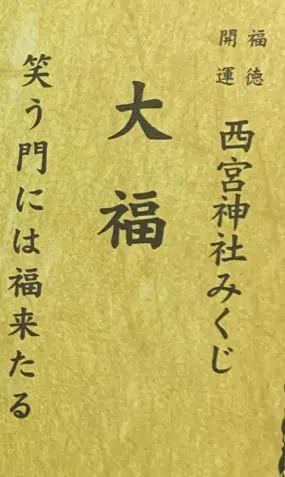 福徳
開運
西宮神社みくじ
大福
笑う門には福来たる